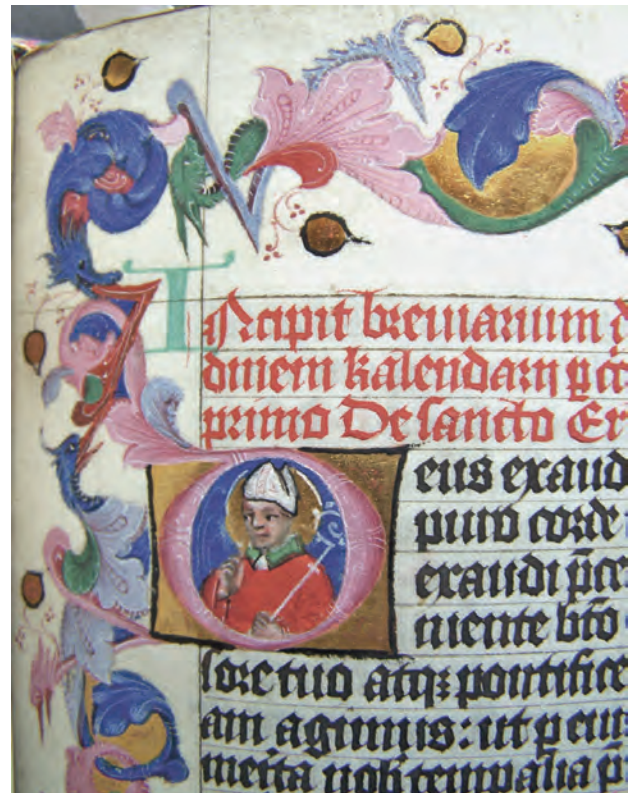 INcipit breuiarium
dinem kalendarij
primo De sancto Er
Deus exaud
puro corde
exaudi p̄ce
niente bt̄o
sore tuo atqꝫ pontifice
am agimus: ut ꝑ eius
merita nob̄ temꝑalia